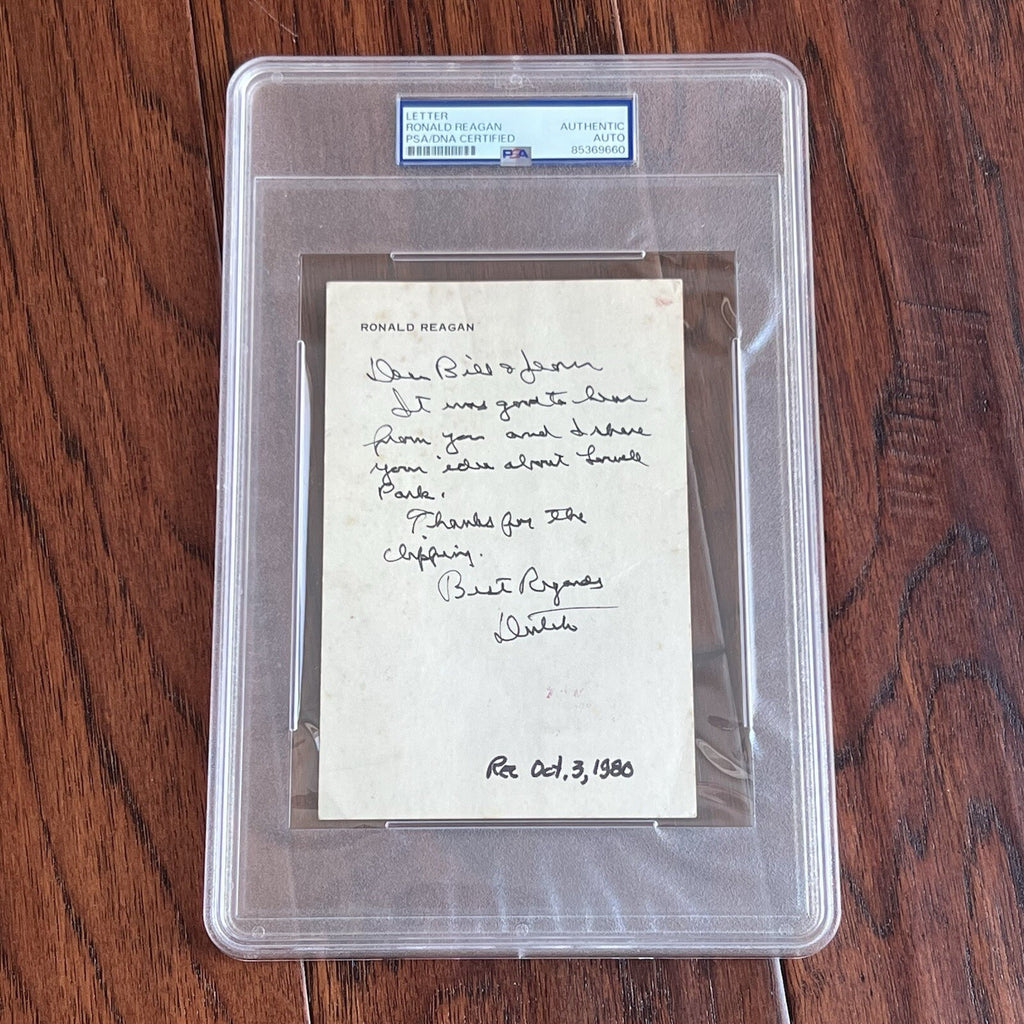 LETTER
RONALD REAGAN
PSA/DNA CERTIFIED
AUTHENTIC
AUTO
85369660
PSA
RONALD REAGAN
Dear Bill & Jean
It was good to hear
from you and I share
your idea about Lowell
Park.
Thanks for the
clipping.
Best Regards
Dutch
Rec Oct. 3, 1980